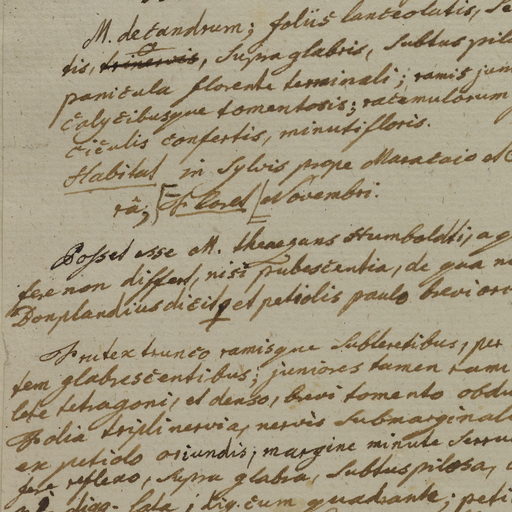 M. decandrum; foliis lanceolatis, se
tis, trinerviis, supra glabris, subtus pilo
panicula florente terminali; ramis jun
calycibusque tomentosis; racemulorum
ciculis confertis, minutifloris.
Habitat in sylvis prope Maracaio et C
râ; [Floret] Novembri.
Posset esse M. theaezans Humboldti, a q
fere non differt, nisi pubescentia, de qua n
Bonplandius dicit, et petiolis paulo brevior
Frutex trunco ramisque subteretibus, per
tem glabrescentibus; juniores tamen rami
lete tetragoni, et denso, brevi tomento obdu
Folia triplinervia, nervis submarginal
ex petiolo oriundis; margine minute serru
fere reflexo, supra glabra, subtus pilosa,
digg. lata; dig. cum quadrante; peti